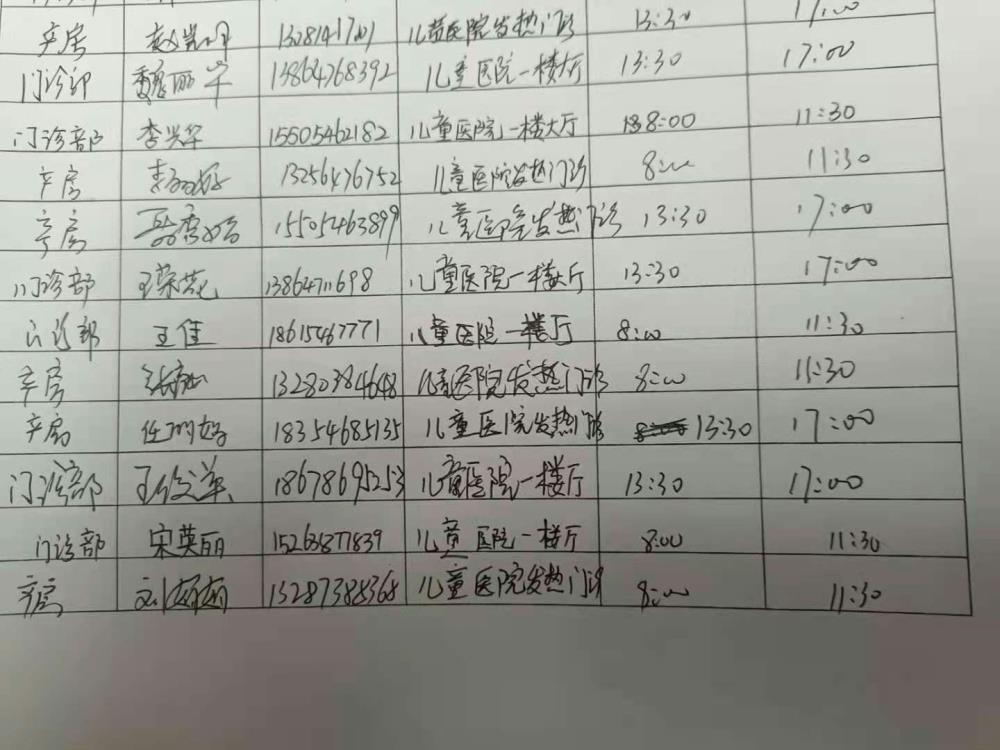 产房 13:30 17:00 儿童医院发热门诊
门诊部 魏丽华 13864768392 儿童医院一楼大厅 13:30 17:00
门诊部 李兴华 15505462182 儿童医院一楼大厅 8:00 11:30
产房 13256476752 儿童医院发热门诊 8:00 11:30
产房 15505463899 儿童医院发热门诊 13:30 17:00
门诊部 王荣花 13864711698 儿童医院一楼大厅 13:30 17:00
门诊部 王佳 18615467771 儿童医院一楼厅 8:00 11:30
产房 13280384648 儿童医院发热门诊 8:00 11:30
产房 18354685135 儿童医院发热门诊 13:30 17:00
门诊部 18678695253 儿童医院一楼厅 13:30 17:00
门诊部 宋英丽 15263877839 儿童医院一楼厅 8:00 11:30
产房 刘娟娟 13287388368 儿童医院发热门诊 8:00 11:30